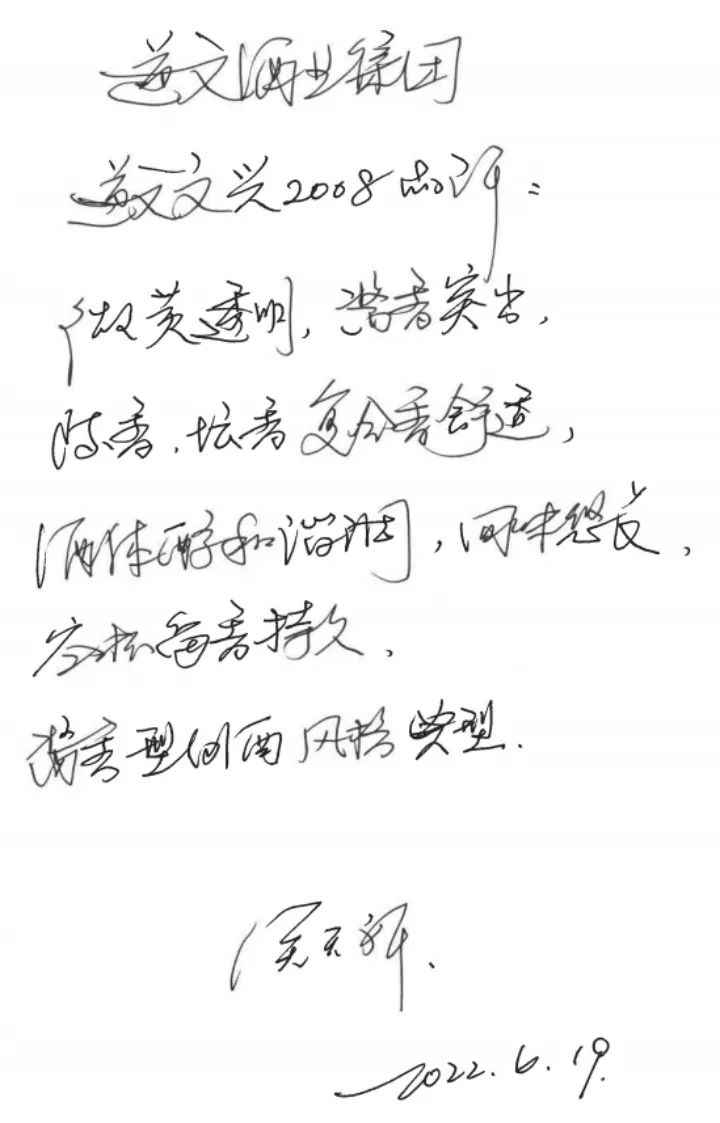 酒业集团
文兴2008品评：
微黄透明，酱香突出，
陈香、坛香复合香舒适，
酒体醇和谐调，回味悠长，
空杯留香持久，
酱香型白酒风格典型.
2022.6.19.